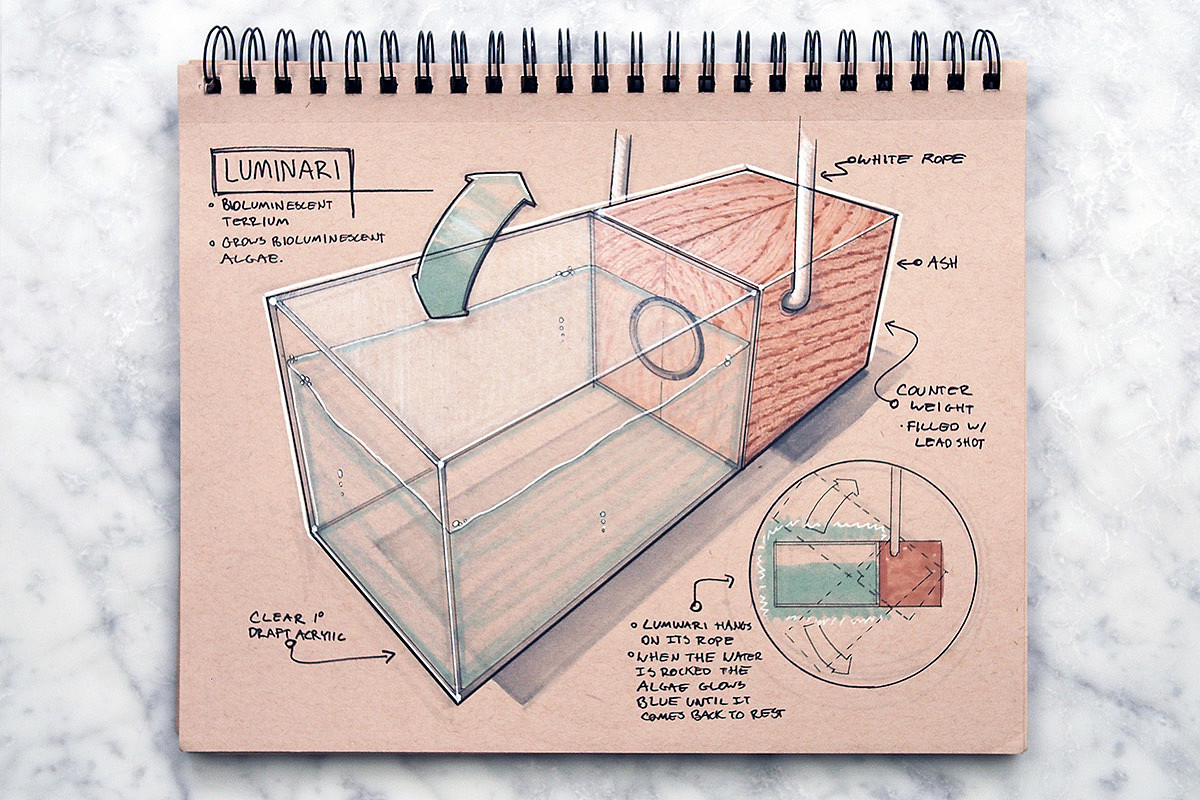 LUMINARI
◦ BIOLUMINESCENT
TERRIUM
◦ GROWS BIOLUMINESCENT
ALGAE.
WHITE ROPE
ASH
COUNTER
WEIGHT
· FILLED W/
LEAD SHOT
CLEAR 1°
DRAFT ACRYLIC
◦ LUMINARI HANGS
ON ITS ROPE
◦ WHEN THE WATER
IS ROCKED THE
ALGAE GLOWS
BLUE UNTIL IT
COMES BACK TO REST